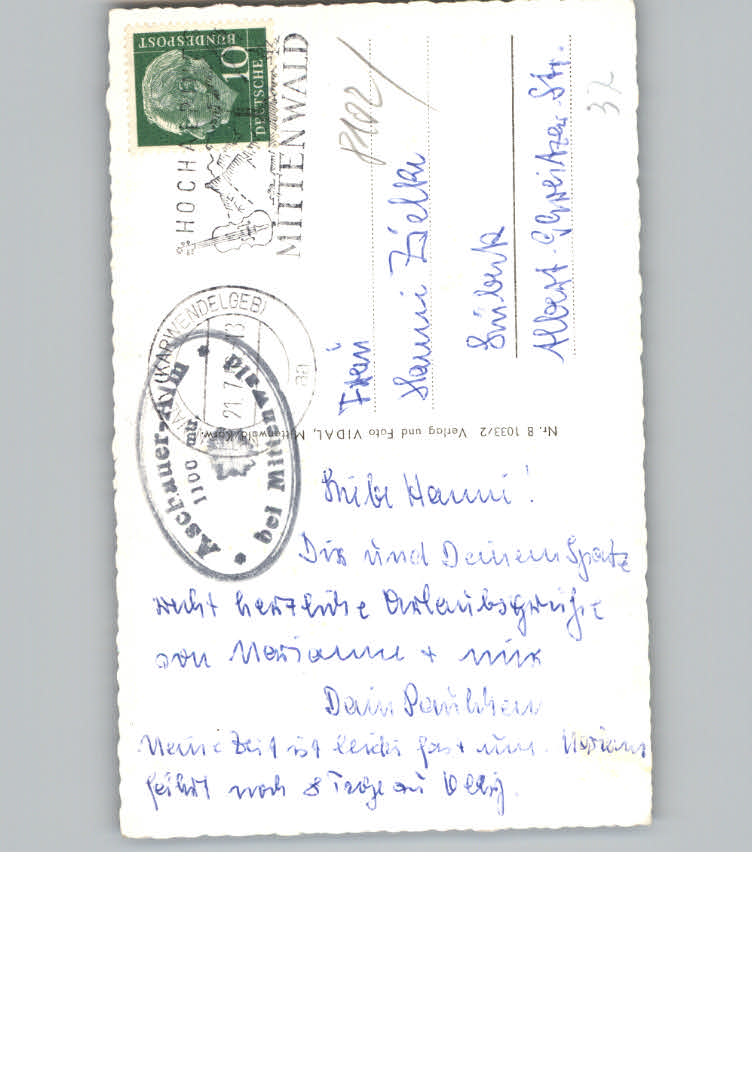 DEUTSCHE
BUNDESPOST
10
HOCHALPEN
MITTENWALD
MITTENWALD (KARWENDELGEB)
21.7.
aa
Aschauer-Alm
1100 m
bei Mittenwald
8102
Frau
Hanni Zielke
Lübeck
Albert-Schweitzer-Str.
32
Nr. B 1033/2 Verlag und Foto VIDAL, Mittenwald/Karw.
Liebe Hanni!
Dir und Deinem Spatz
recht herzliche Urlaubsgrüße
von Marianne + mir
Dein Paulchen
Meine Zeit ist leider fast um. Marianne
fährt noch 8 Tage